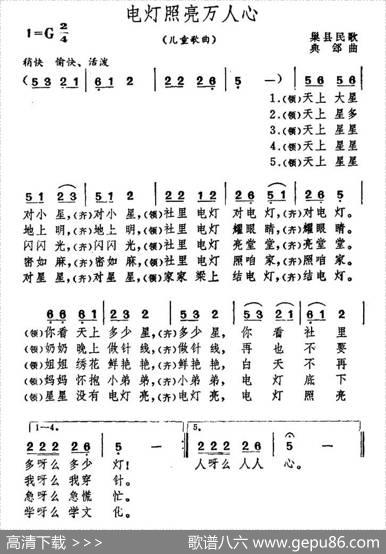 电灯照亮万人心
1=G 2/4
（儿童歌曲）
巢县民歌
典郃曲
稍快 愉快、活泼
(5 3 2 1 | 6 1 2 | 2 2 2 2 2 6 | 5 —) | 5 6 5 6
1.(领)天上 大星
2.(领)天上 星多
3.(领)天上 星星
4.(领)天上 星星
5.(领)天上 星星
5 1 2 3 | 5 1 2 | 2 2 1 2 | 2 6 5 1 | 2 6 5
对小 星,(齐)对小 星,(领)社里 电灯 对电 灯,(齐)对电 灯。
地上 明,(齐)地上 明,(领)社里 电灯 耀眼 睛,(齐)耀眼 睛。
闪闪 光,(齐)闪闪 光,(领)社里 电灯 亮堂 堂,(齐)亮堂 堂。
密如 麻,(齐)密如 麻,(领)社里 电灯 照咱 家,(齐)照咱 家。
对星 星,(齐)对星 星,(领)家家 梁上 结电 灯,(齐)结电 灯。
6 6 6 1 | 2 1 6 | 2 1 6 | 5 3 2 1 | 6 1 2
(领)你看 天上 多少 星,(齐)多少 星, 你 看 社 里
(领)奶奶 晚上 做针 线,(齐)做针 线, 再 也 不 要
(领)姐姐 绣花 鲜艳 艳,(齐)鲜艳 艳, 白 天 不 再
(领)妈妈 怀抱 小弟 弟,(齐)小弟 弟, 电 灯 底 下
(领)星星 没有 电灯 亮,(齐)电灯 亮,
1—4.
5.
2 2 2 2 2 6 | 5 — :| 2 2 2 2 2 6 | 2 6 | 5 —
多呀么 多少 灯! 人呀么 人人 心。
我呀么 我穿 针。
急呀么 急慌 忙。
学呀么 学文 化。
高清下载 >>>
歌谱八六 www.gepu86.com